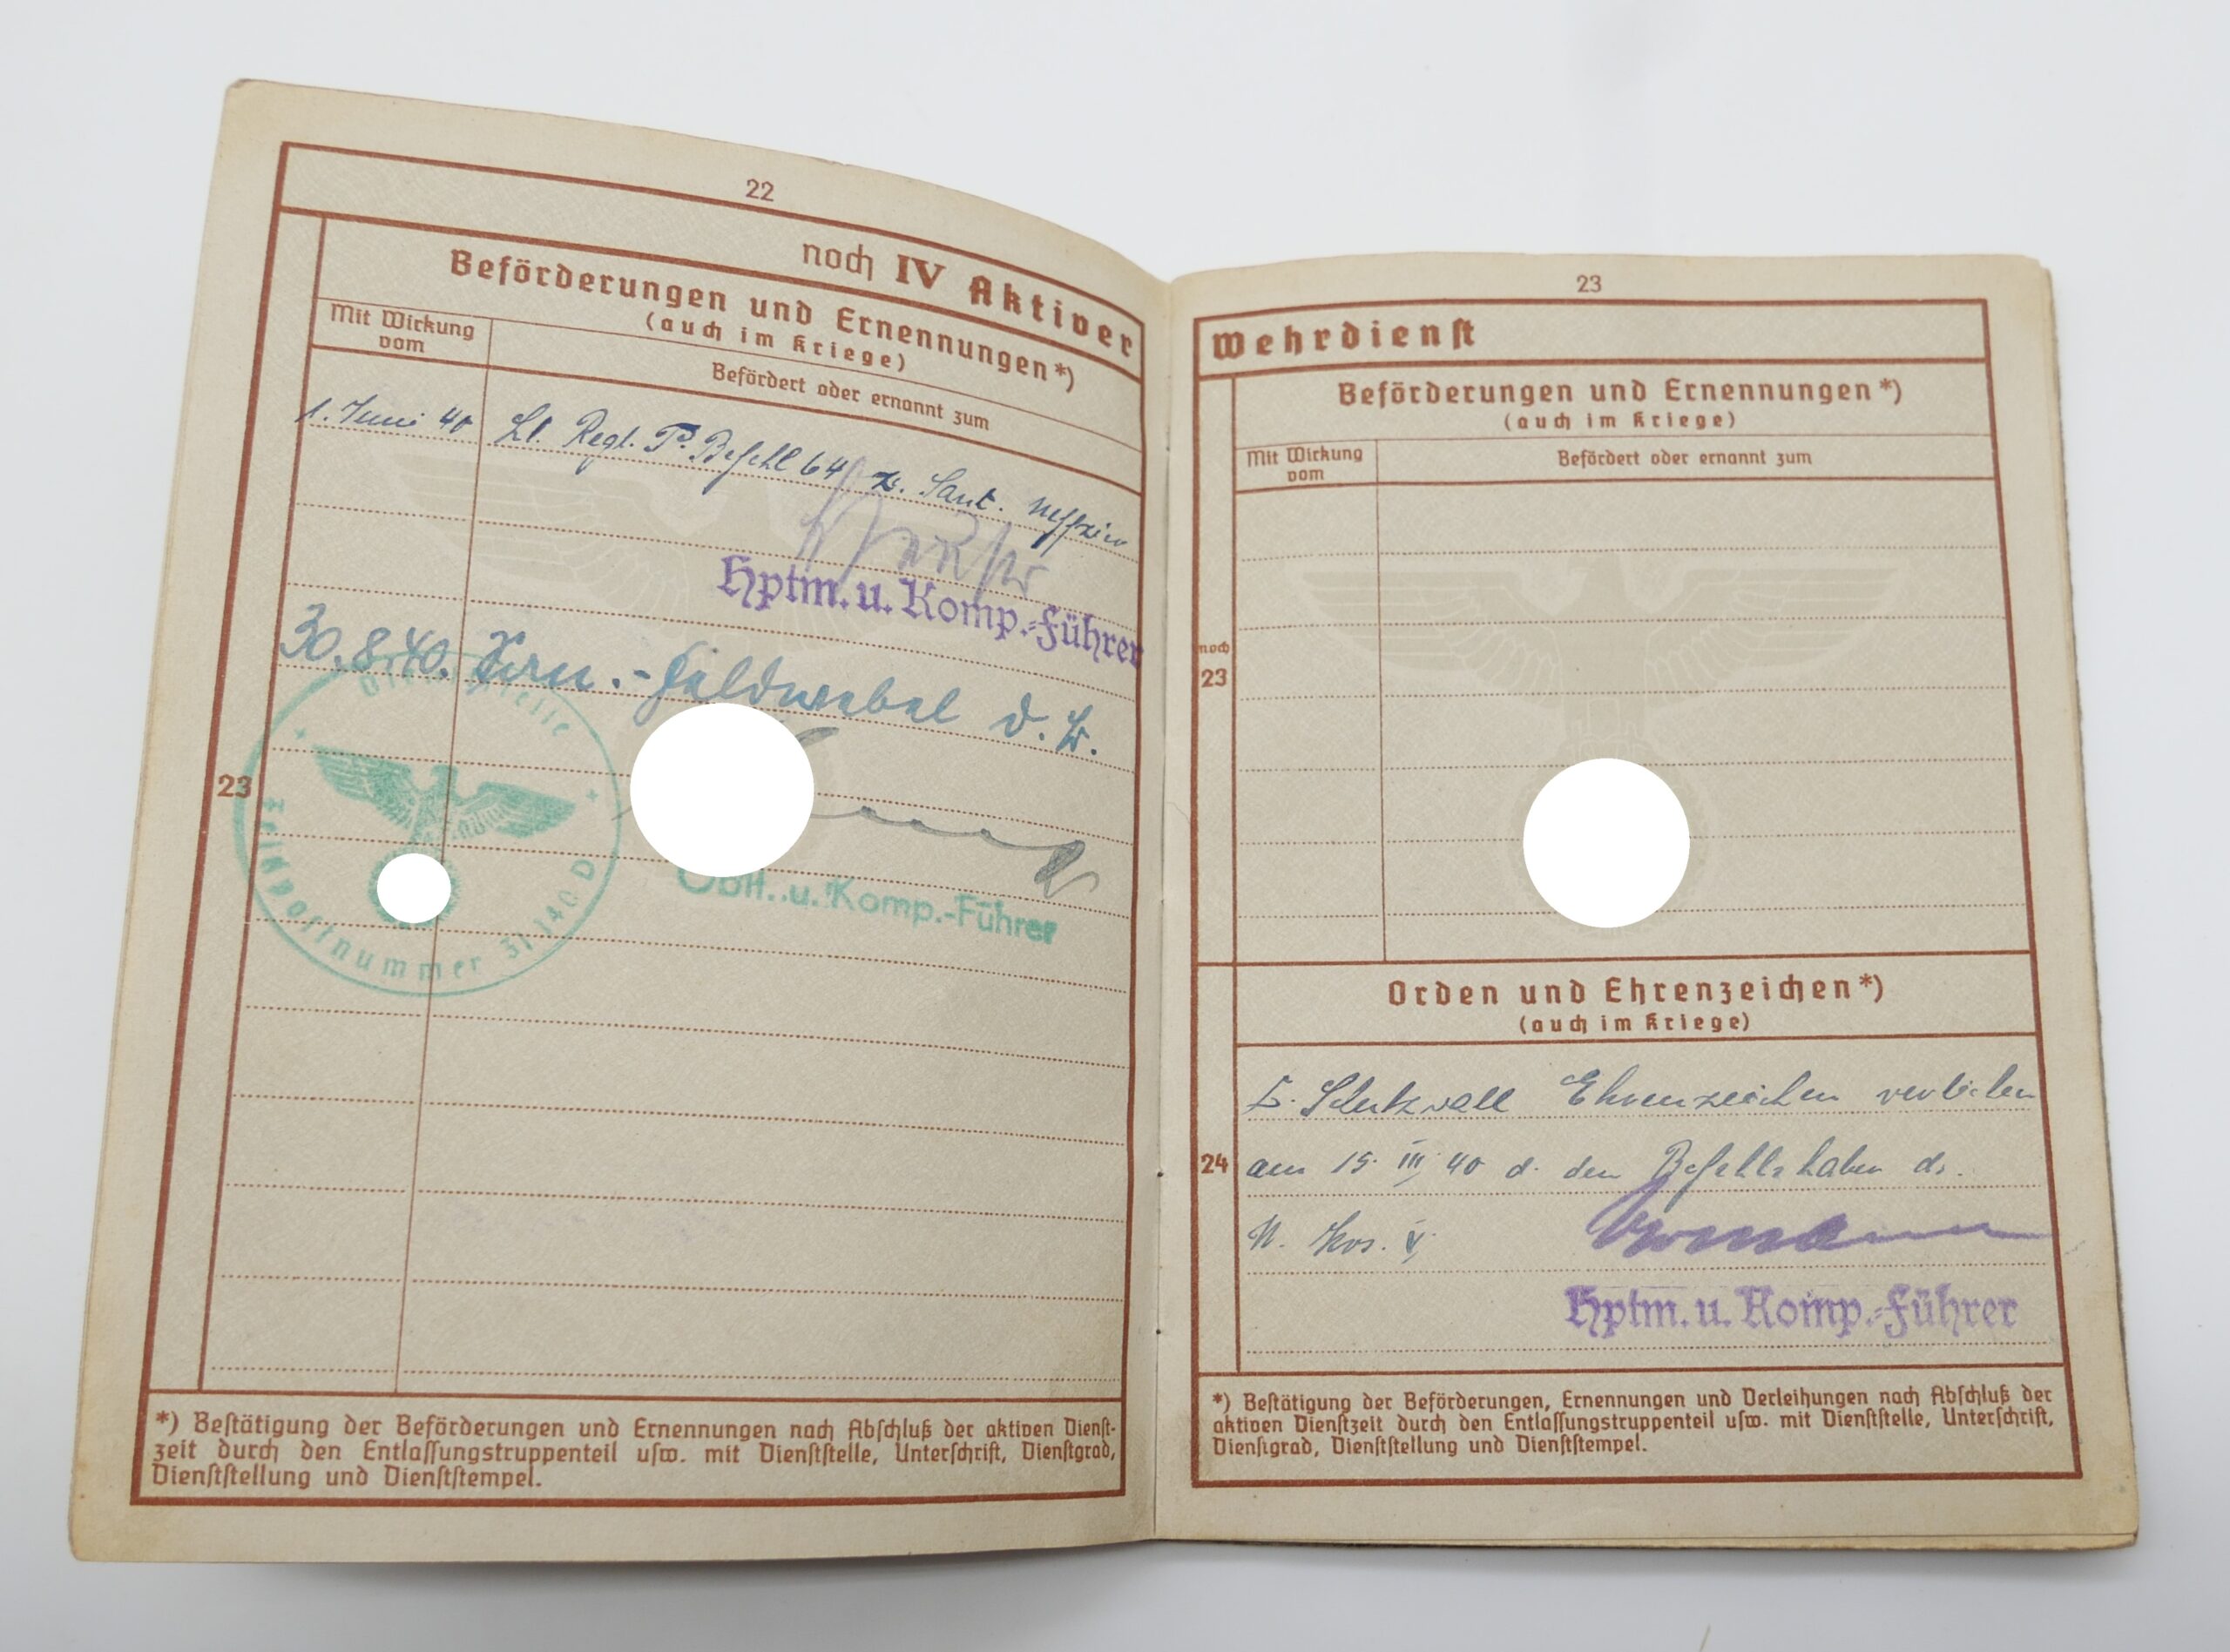 22
noch IV Aktiver
Beförderungen und Ernennungen*)
(auch im Kriege)
Mit Wirkung vom
Befördert oder ernannt zum
1. Juni 40 Lt. Regt. Befehl 64 z.
Hptm. u. Komp.-Führer
30.8.40. -Feldwebel d.
Dienststelle
Feldpostnummer 31140 D
23
Oblt. u. Komp.-Führer
*) Bestätigung der Beförderungen und Ernennungen nach Abschluß der aktiven Dienst-
zeit durch den Entlassungstruppenteil usw. mit Dienststelle, Unterschrift, Dienstgrad,
Dienststellung und Dienststempel.
23
Wehrdienst
Beförderungen und Ernennungen*)
(auch im Kriege)
Mit Wirkung vom
Befördert oder ernannt zum
noch
23
Orden und Ehrenzeichen*)
(auch im Kriege)
Schutzwall Ehrenzeichen verliehen
24
am 15. III. 40 d. den Befehlshaber d.
Hptm. u. Komp.-Führer
*) Bestätigung der Beförderungen, Ernennungen und Verleihungen nach Abschluß der
aktiven Dienstzeit durch den Entlassungstruppenteil usw. mit Dienststelle, Unterschrift,
Dienstgrad, Dienststellung und Dienststempel.